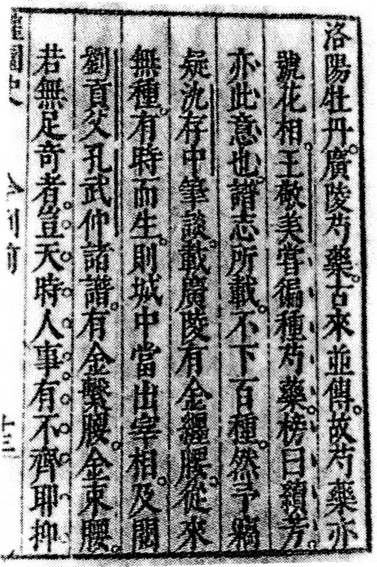 洛陽牡丹廣陵芍藥古來並傳故芍藥亦
號花相王敬美嘗徧種芍藥榜曰續芳
亦此意也譜志所載不下百種然予竊
疑沈存中筆談載廣陵有金纏腰從來
無種有時而生則城中當出宰相及閱
劉貢父孔武仲諸譜有金繫腰金束腰
若無足奇者豈天時人事有不齊耶抑
十三